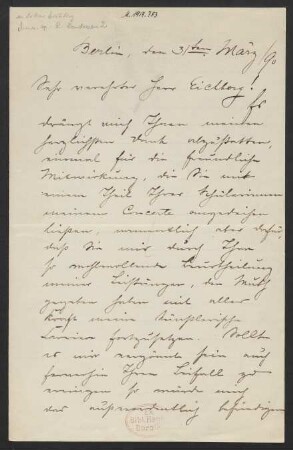 N. 1919.383
Berlin, den 31ten März 90
Sehr verehrter Herr Eichberg!
Es
drängt mich Ihnen meinen
herzlichsten Dank abzustatten,
einmal für die freundliche
Mitwirkung, die Sie mit
einem Theil Ihrer Schülerinnen
meinem Concerte angedeihen
ließen, namentlich aber dafür,
daß Sie mir durch Ihre
so wohlwollende Beurtheilung
meiner Leistungen, den Muth
gegeben haben mit aller
Kraft meine künstlerische
Carriere fortzusetzen. Sollte
es mir vergönnt sein auch
fernerhin Ihren Beifall zu
erringen so würde mich
das außerordentlich befriedigen